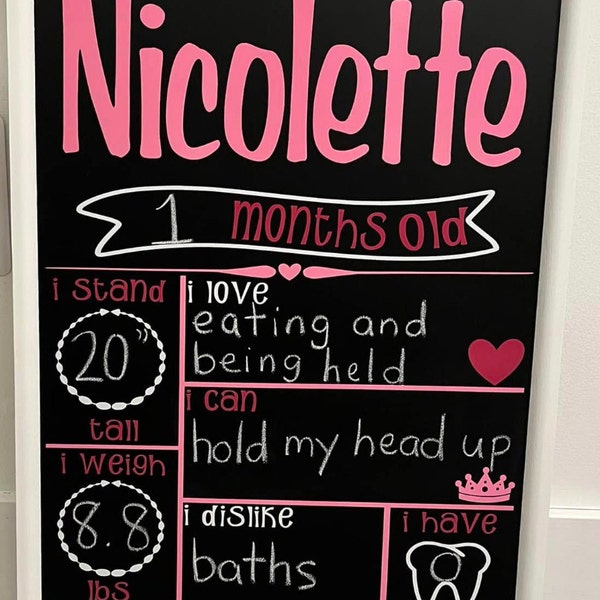 Nicolette
1 months old
i stand
20"
tall
i weigh
8.8
lbs
i love
eating and
being held
i can
hold my head up
i dislike
baths
i have
0